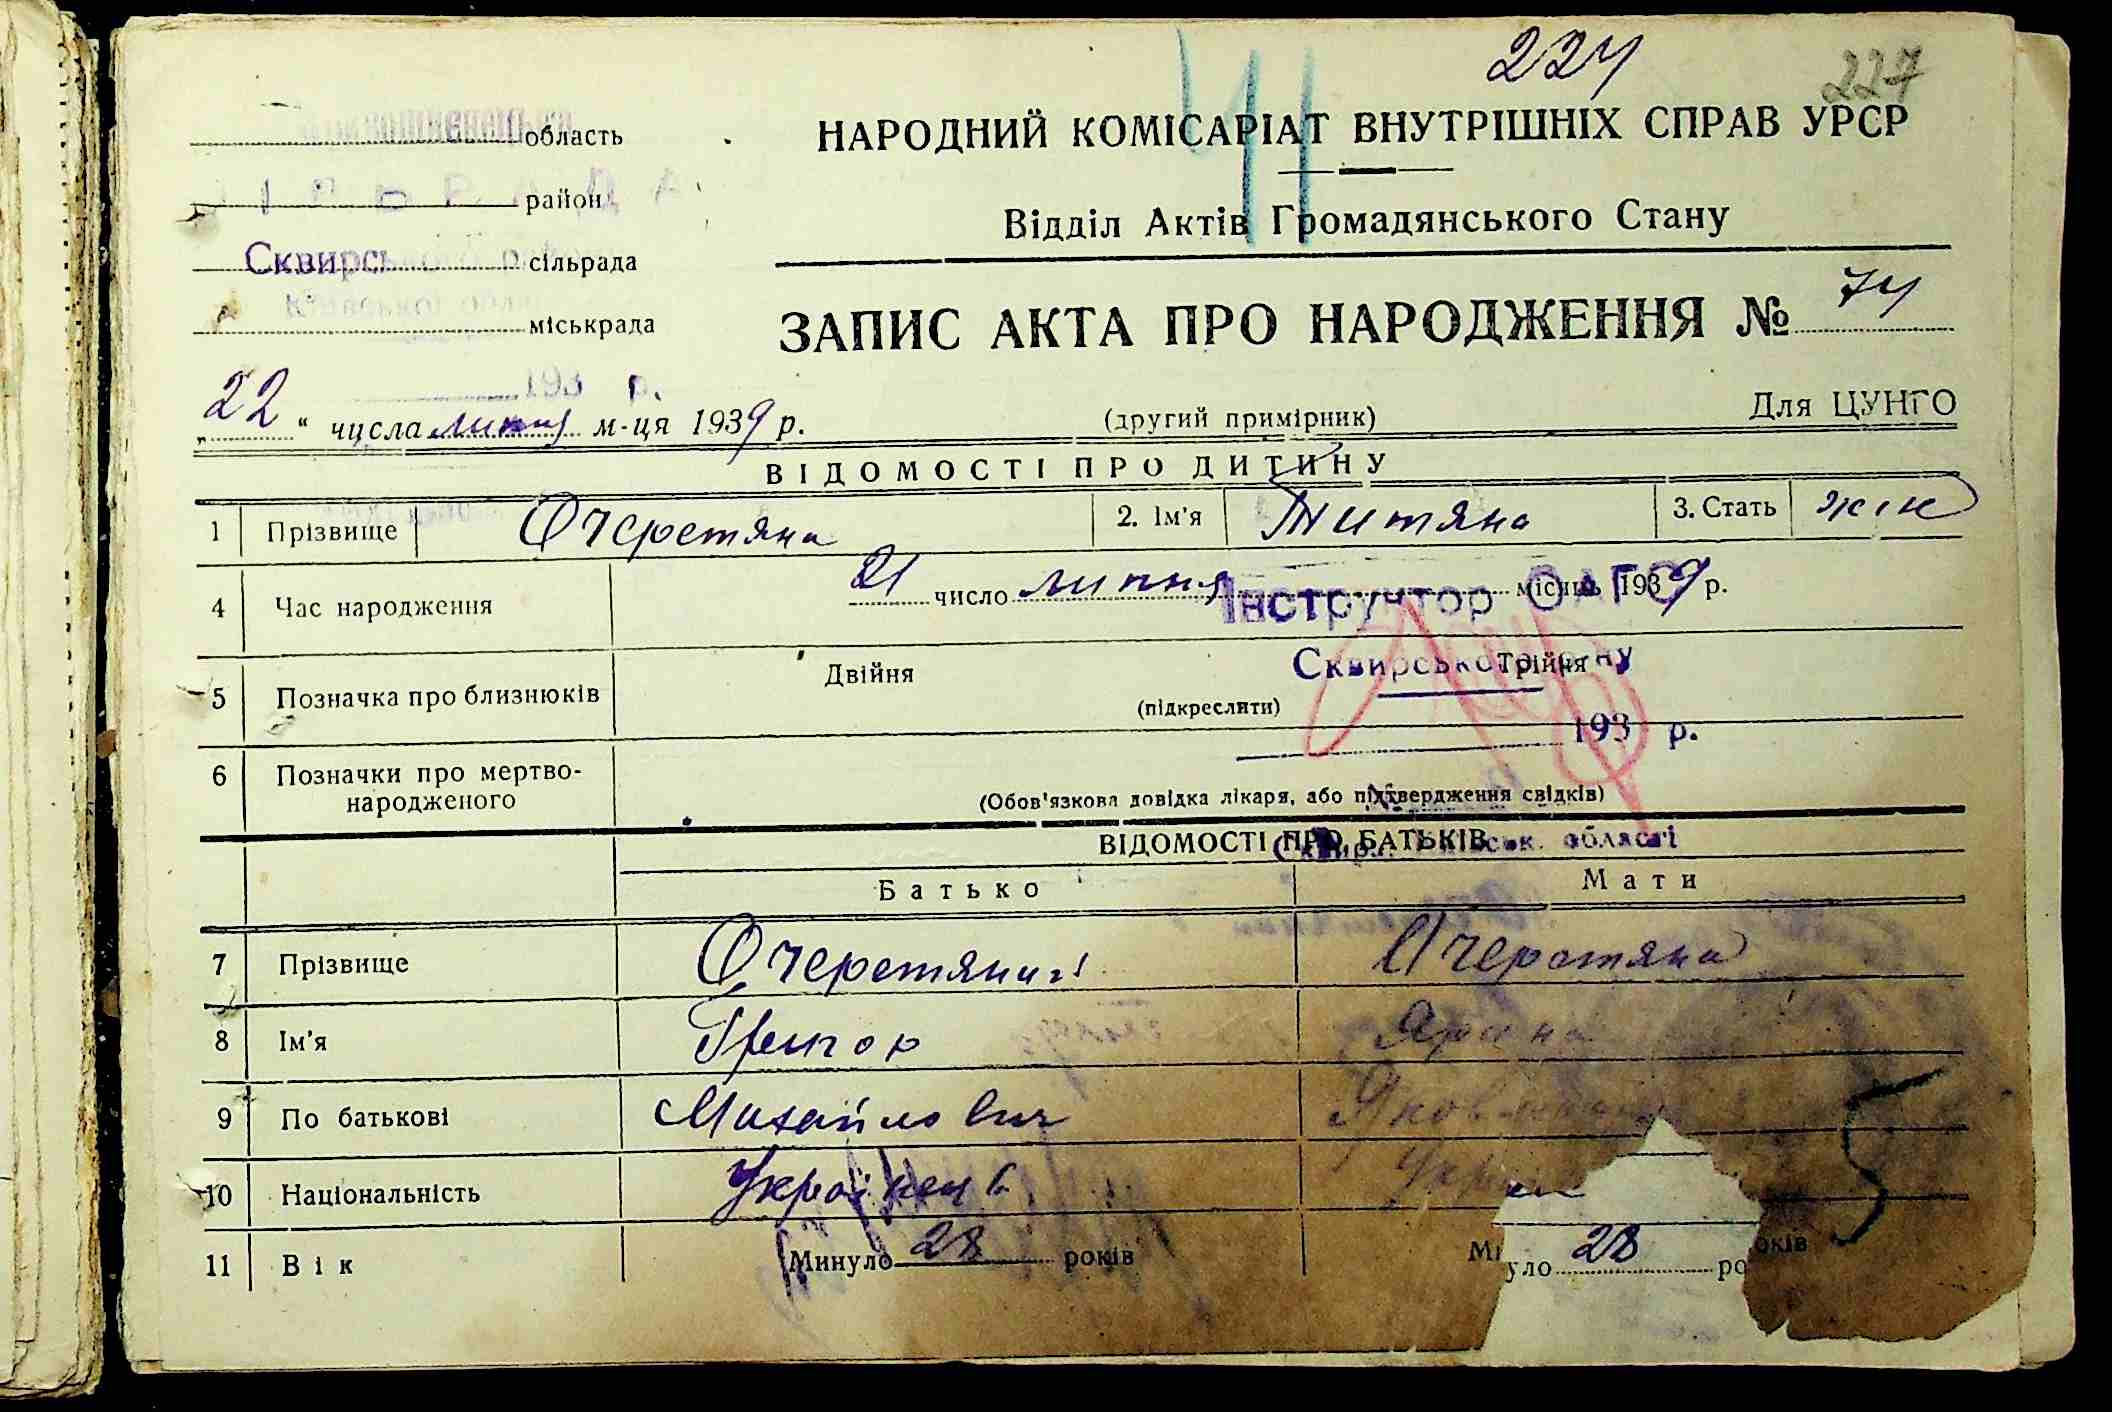 224
227
область
район
Сквирськ сільрада
міськрада
НАРОДНИЙ КОМІСАРІАТ ВНУТРІШНІХ СПРАВ УРСР
Відділ Актів Громадянського Стану
ЗАПИС АКТА ПРО НАРОДЖЕННЯ № 74
193 р.
„22“ числа липня м-ця 1939 р.
(другий примірник)
Для ЦУНГО
ВІДОМОСТІ ПРО ДИТИНУ
1 Прізвище Очеретяна 2. Ім'я Титяна 3. Стать жін
4 Час народження 21 число липня місяць 1939 р.
Інструктор ОАГС
5 Позначка про близнюків Двійня Трійня
(підкреслити)
193 р.
6 Позначки про мертво-
народженого
(Обов'язкова довідка лікаря, або підтвердження свідків)
ВІДОМОСТІ ПРО БАТЬКІВ
області
Батько Мати
7 Прізвище Очеретяний Очеретяна
8 Ім'я Григор Ярина
9 По батькові Михайлович Яковлевна
10 Національність Українець
11 Вік Минуло 28 років Минуло 28 років